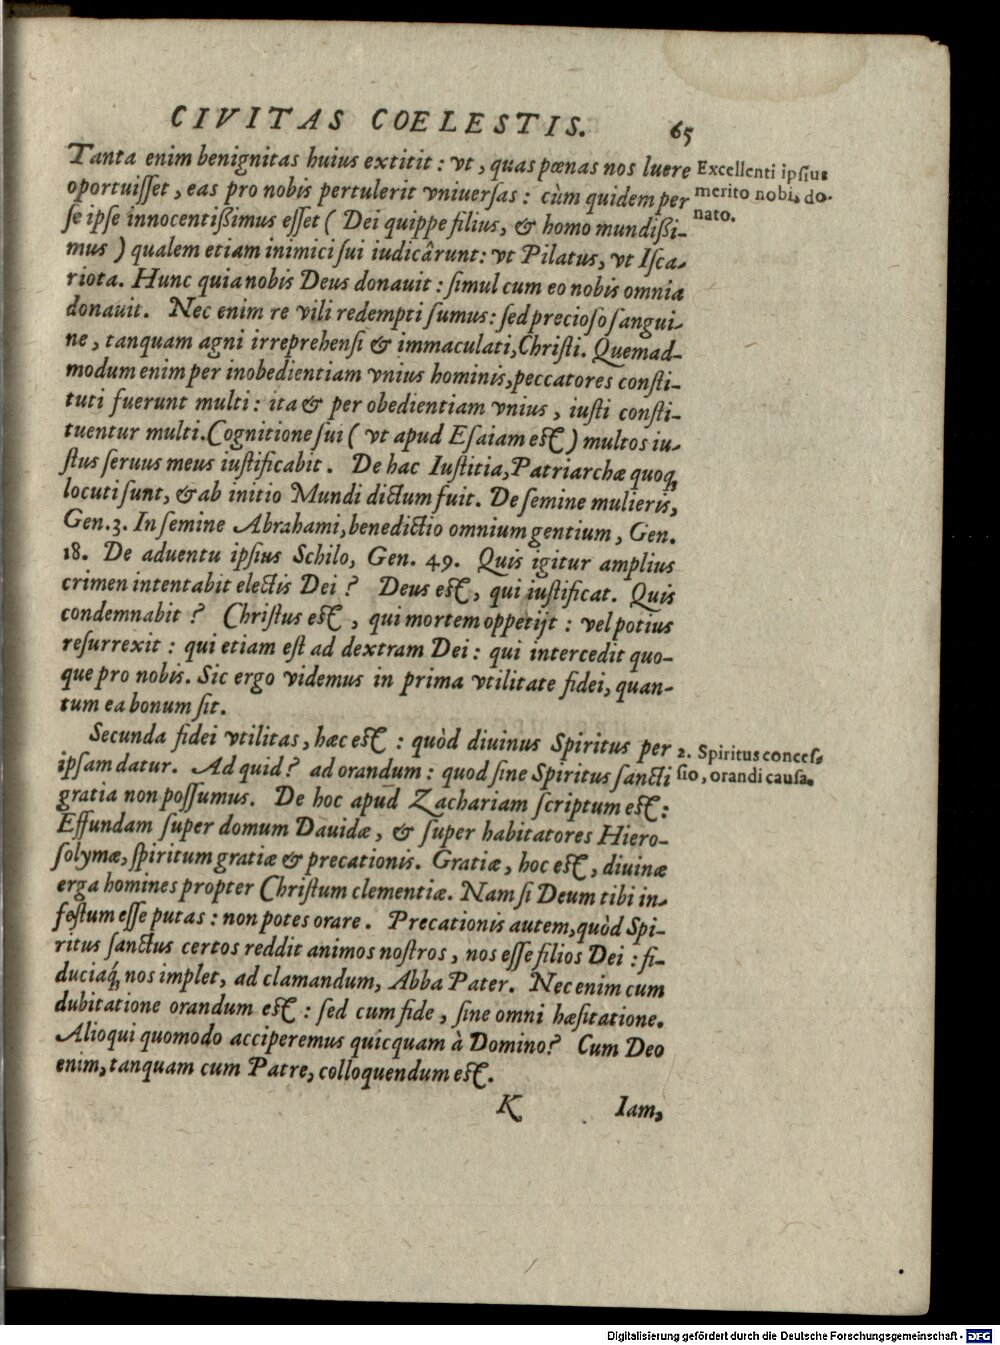 CIVITAS COELESTIS. 65
Tanta enim benignitas huius extitit: vt, quas pœnas nos luere
oportuiſſet, eas pro nobis pertulerit vniuerſas: cùm quidem per
ſe ipſe innocentißimus eſſet ( Dei quippe filius, & homo mundißi-
mus ) qualem etiam inimici ſui iudicârunt: vt Pilatus, vt Iſca-
riota. Hunc quia nobis Deus donauit: ſimul cum eo nobis omnia
donauit. Nec enim re vili redempti ſumus: ſed precioſo ſangui-
ne, tanquam agni irreprehenſi & immaculati, Chriſti. Quemad-
modum enim per inobedientiam vnius hominis, peccatores conſti-
tuti fuerunt multi: ita & per obedientiam vnius, iuſti conſti-
tuentur multi. Cognitione ſui ( vt apud Eſaiam eſt ) multos iu-
ſtus ſeruus meus iuſtificabit. De hac Iuſtitia, Patriarchæ quoq́;
locuti ſunt, & ab initio Mundi dictum fuit. De ſemine mulieris,
Gen. 3. In ſemine Abrahami, benedictio omnium gentium, Gen.
18. De aduentu ipſius Schilo, Gen. 49. Quis igitur amplius
crimen intentabit electis Dei? Deus eſt, qui iuſtificat. Quis
condemnabit? Chriſtus eſt, qui mortem oppetijt: vel potius
reſurrexit: qui etiam eſt ad dextram Dei: qui intercedit quo-
que pro nobis. Sic ergo videmus in prima vtilitate fidei, quan-
tum ea bonum ſit.
Excellenti ipſius
merito nobis do-
nato.
Secunda fidei vtilitas, hæc eſt: quòd diuinus Spiritus per
ipſam datur. Ad quid? ad orandum: quod ſine Spiritus ſancti
gratia non poſſumus. De hoc apud Zachariam ſcriptum eſt:
Effundam ſuper domum Dauidæ, & ſuper habitatores Hiero-
ſolymæ, ſpiritum gratiæ & precationis. Gratiæ, hoc eſt, diuinæ
erga homines propter Chriſtum clementiæ. Nam ſi Deum tibi in-
feſtum eſſe putas: non potes orare. Precationis autem, quòd Spi-
ritus ſanctus certos reddit animos noſtros, nos eſſe filios Dei: fi-
duciaq́; nos implet, ad clamandum, Abba Pater. Nec enim cum
dubitatione orandum eſt: ſed cum fide, ſine omni hæſitatione.
Alioqui quomodo acciperemus quicquam à Domino? Cum Deo
enim, tanquam cum Patre, colloquendum eſt.
2. Spiritus conceſ-
ſio, orandi cauſa.
K Iam,
Digitalisierung gefördert durch die Deutsche Forschungsgemeinschaft - DFG